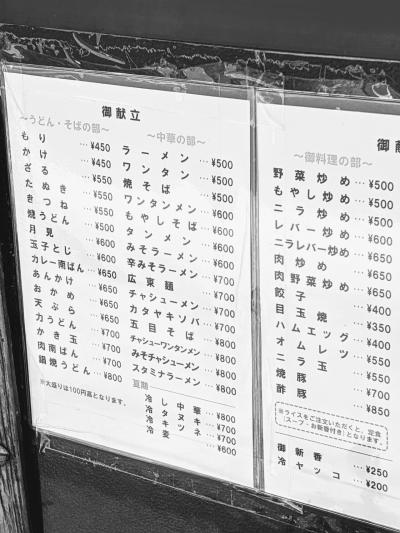 御献立
～うどん・そばの部～
もり …¥450
かけ …¥450
ざる …¥550
たぬき …¥550
きつね …¥550
焼うどん …¥500
月見 …¥600
玉子とじ …¥600
カレー南ばん …¥650
あんかけ …¥650
おかめ …¥650
天ぷら …¥650
力うどん …¥700
かき玉 …¥700
肉南ばん …¥700
鍋焼うどん …¥800
※大盛りは100円高となります。
～中華の部～
ラーメン …¥500
ワンタン …¥500
焼そば …¥500
ワンタンメン …¥600
もやしそば …¥600
タンメン …¥600
みそラーメン …¥600
辛みそラーメン …¥700
広東麺 …¥700
チャシューメン …¥700
カタヤキソバ …¥700
五目そば …¥800
チャシューワンタンメン …¥800
みそチャシューメン …¥800
スタミナラーメン …¥800
夏期
冷し中華 …¥800
冷タヌキ …¥700
冷キツネ …¥700
冷麦 …¥600
御献
～御料理の部～
野菜炒め …¥500
もやし炒め …¥500
ニラ炒め …¥500
レバー炒め …¥600
ニラレバー炒め …¥650
肉炒め …¥650
肉野菜炒め …¥650
餃子 …¥400
目玉焼 …¥350
ハムエッグ …¥400
オムレツ …¥550
ニラ玉 …¥550
焼豚 …¥700
酢豚 …¥850
※ライスをご注文いただくと、定食
(スープ・お新香付き)となります。
御新香 …¥250
冷ヤッコ …¥200